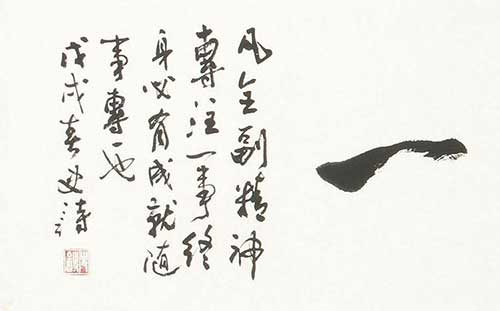 一
凡全副精神
專注一事終
身必有成就随
事專一也
戊戌春